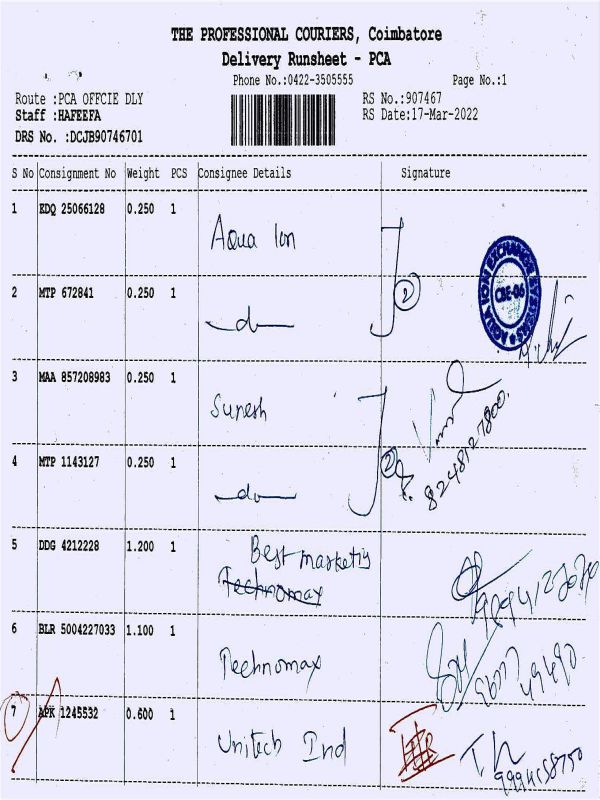 THE PROFESSIONAL COURIERS, Coimbatore
Delivery Runsheet - PCA
Phone No.:0422-3505555 Page No.:1
Route :PCA OFFCIE DLY RS No.:907467
Staff :HAFEEFA RS Date:17-Mar-2022
DRS No. :DCJB90746701
S No Consignment No Weight PCS Consignee Details Signature
1 EDQ 25066128 0.250 1 Aqua Ion
AQUA ION EXCHANGE SYSTEMS
CBE-06
2 MTP 672841 0.250 1 do 2
3 MAA 857208983 0.250 1 Suresh
8248127800
4 MTP 1143127 0.250 1 do 2
5 DDG 4212228 1.200 1 Best marketig
Technomax
6 BLR 5004227033 1.100 1 Technomax
7 APK 1245532 0.600 1 Unitech Ind